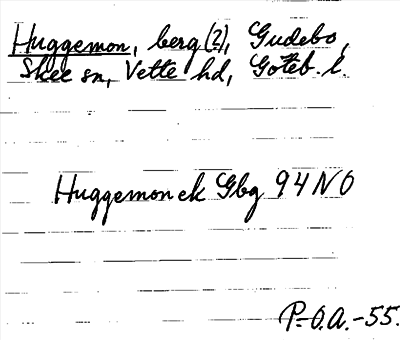 Huggemon, berg (2), Gudebo,
Skee sn, Vette hd, Göteb. l.
Huggemon ek Gbg 94 NO
P.O.A.-55.